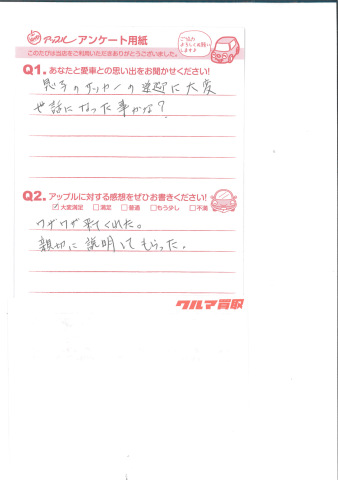 アップル アンケート用紙
ご協力
よろしくお願い
します♪
このたびは当店をご利用いただきありがとうございました。
Q1. あなたと愛車との思い出をお聞かせください!
息子のサッカーの送迎に大変
世話になった事かな?
Q2. アップルに対する感想をぜひお書きください!
☑大変満足 □満足 □普通 □もう少し □不満
ワザワザ来てくれた。
親切に説明してもらった。
クルマ買取